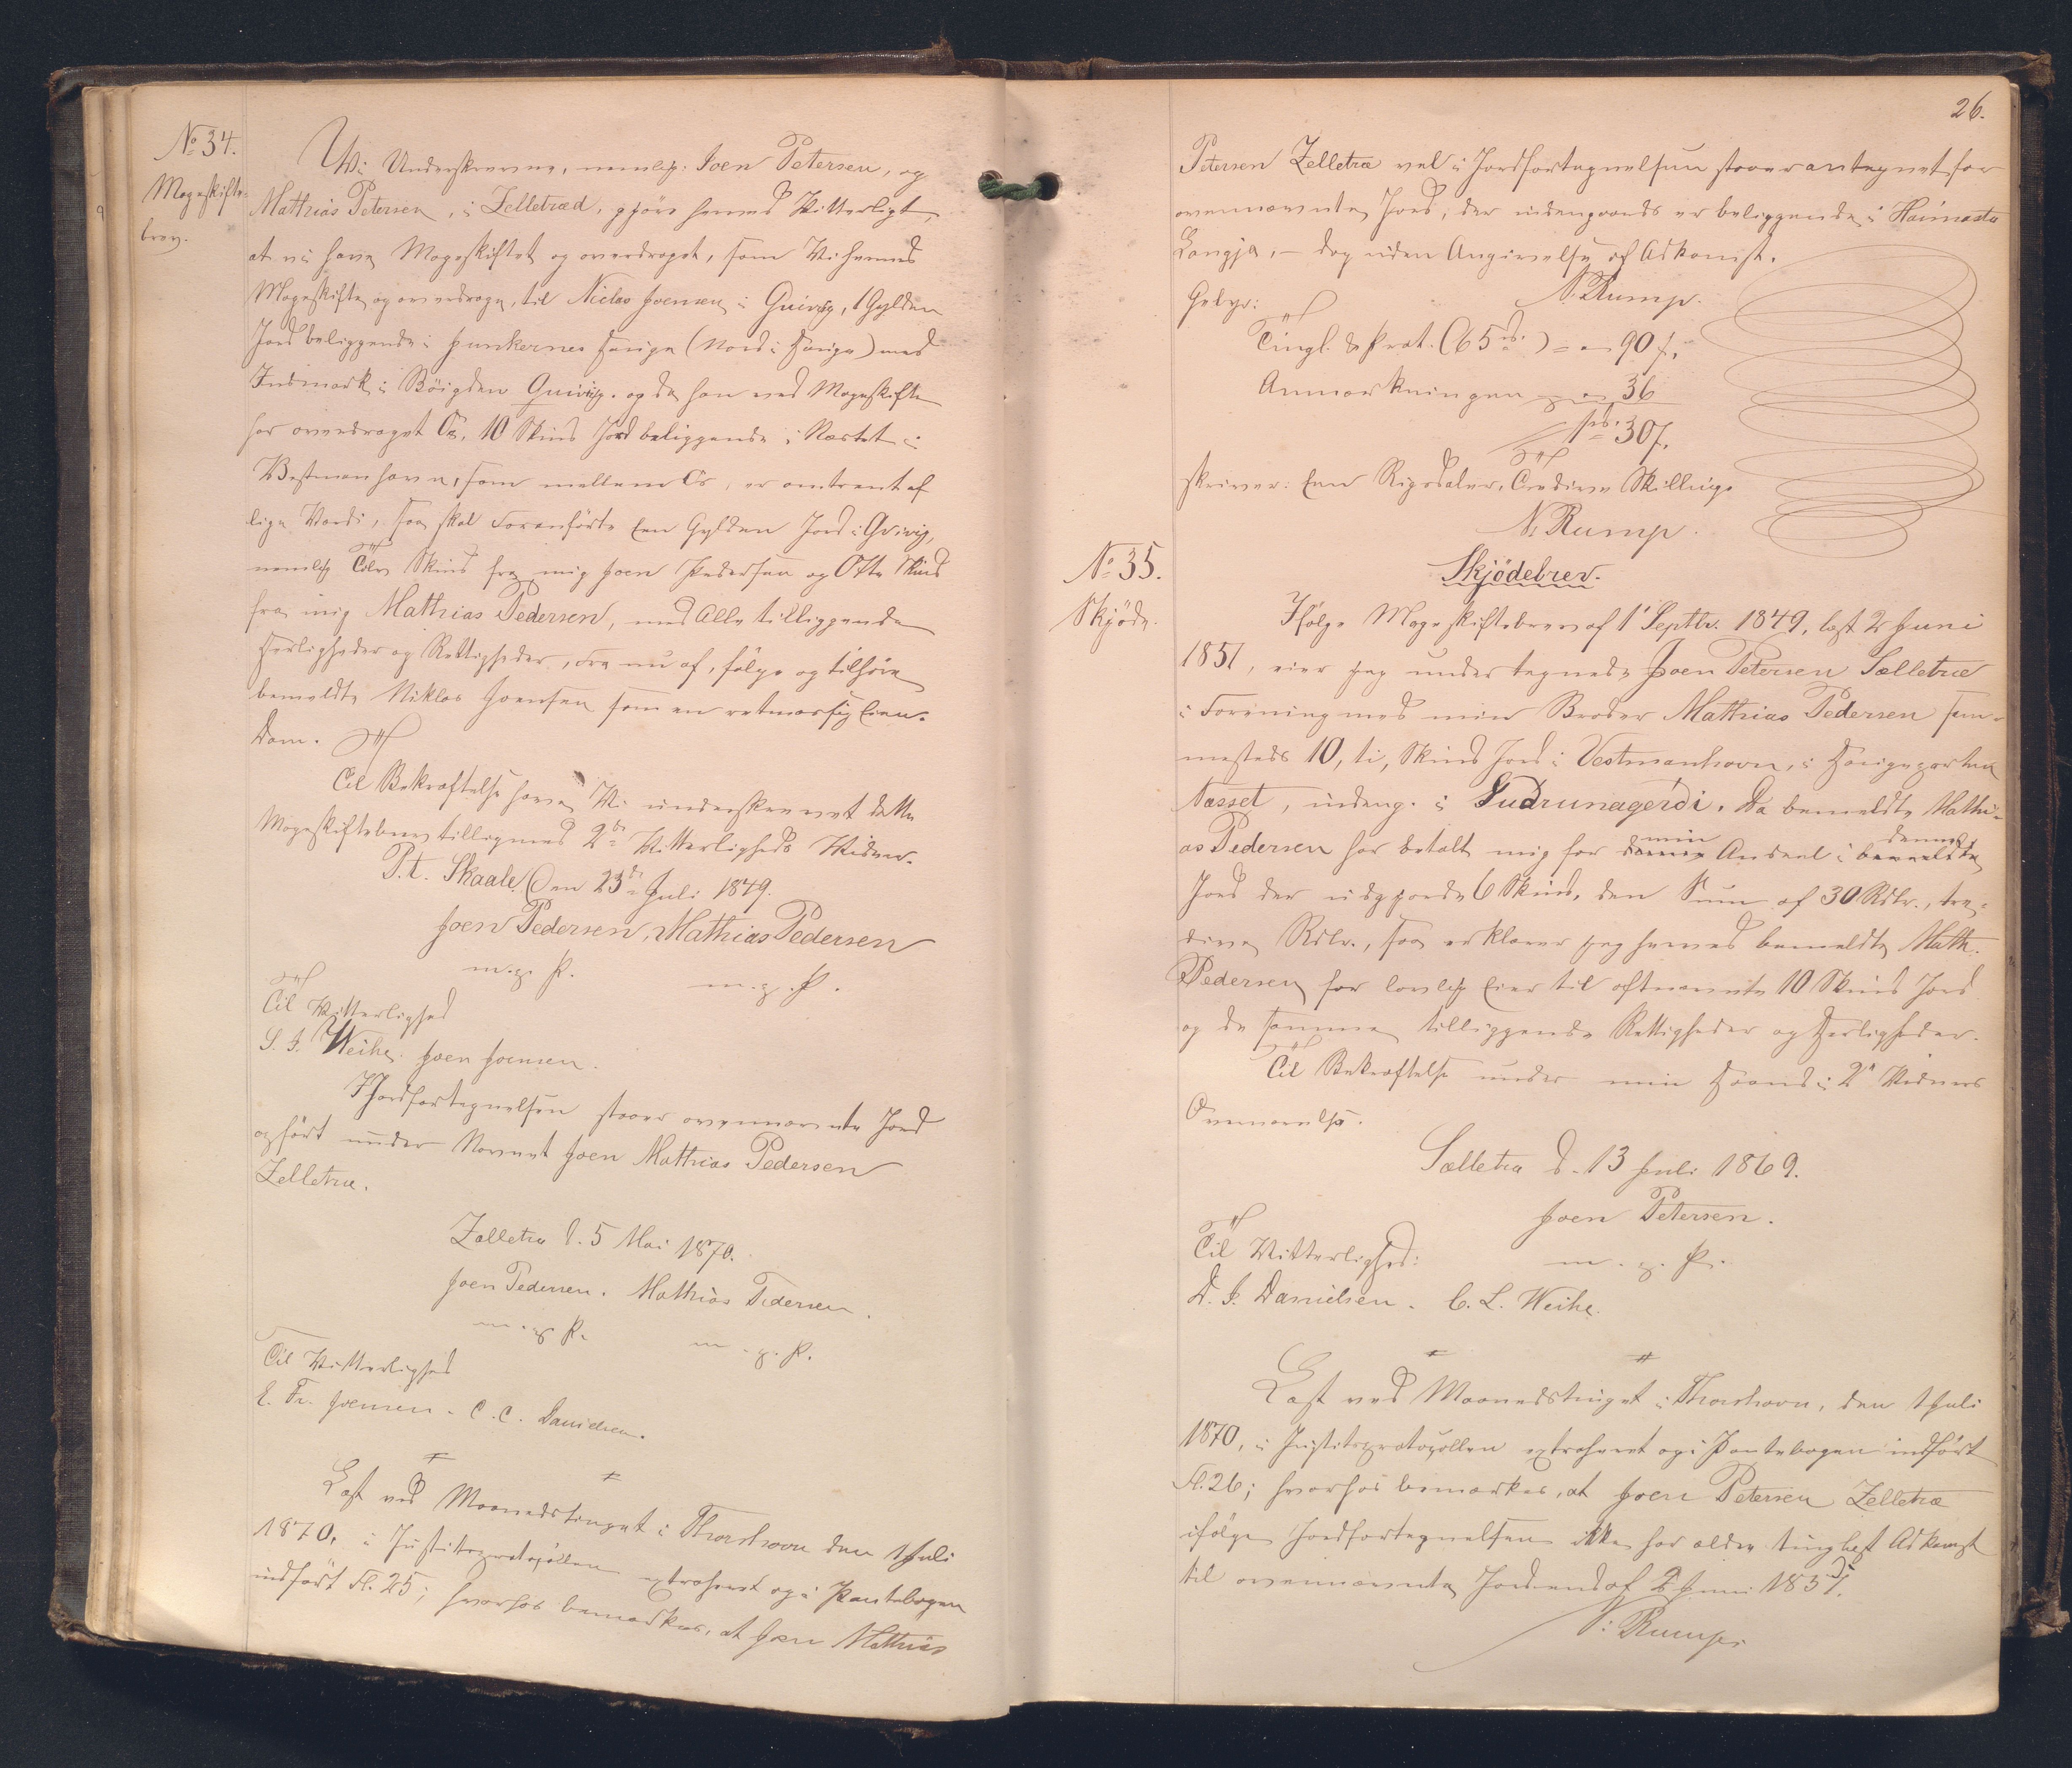 No 34.
Mageskifte-
brev.
Vi Underskrevne, nemlig: Joen Petersen, og
Mathias Petersen, i Zelletræd, gjöre herved Vitterligt,
at vi have Mageskiftet og overdraget, som Vi herved
Mageskifte og overdrage, til Niclas Joensen i Qvivig, 1 Gylden
Jord beliggende i Haugen (Nord i Hauge) med
Indmark i Böigden Qvivig. og da han ved Mageskifte
har overdraget Os, 10 Skind Jord beliggende i Næstet i
Vestmanhavn, som mellem Os, er omtrent af
lige Værdi, saa skal Foranförte Een Gylden Jord i Qvivig,
nemlig Tolv Skind fra mig Joen Pedersen og Otte Skind
fra mig Mathias Pedersen, med Alle tilliggende
Herligheder og Rettigheder, Fra nu af, fölge og tilhöre
bemeldte Niklas Joensen som en retmæssig Eien-
dom.
Til Bekræftelse have Vi underskrevet dette
Mageskiftebrev tilligemed 2de Vitterligheds Vidner.
P.t. Skaale Den 23de Juli 1849.
Joen Pedersen, Mathias Pedersen
m. p. P. m. p. P.
Til Vitterlighed
S. J. Weihe. Joen Joensen.
I Jordfortegnelsen staaer ovennævnte Jord
opfört under Navnet Joen Mathias Pedersen
Zelletræ.
Zælletra d. 5 Mai 1870.
Joen Pedersen. Mathias Pedersen.
m. p. P. m. p. P.
Til Vitterlighed
E. Fr. Joensen. C. C. Danielsen.
Læst ved Maanedstinget i Thorshavn den 1 Juli
1870, i Justitsprotocollen extraheret og i Pantebogen
indfört Fl. 25; hvorhos bemærkes, at Joen Mathias
26.
Petersen Zelletræ vel i Jordfortegnelsen staaer antegnet for
ovennævnte Jord, der indengaards er beliggende i Haimasta
Langja, — dog uden Angivelse af Adkomst.
N. Rump.
Gebyr:
Tingl. & Prot. (65 rd.) = 90 f.
Anmærkningen 36
1 rd. 30 f.
skriver: Een Rigsdaler, Tredive Skilling
N. Rump.
No 35.
Skjöde.
Skjödebrev.
Ifölge Mageskiftebrev af 1' Septbr. 1849, læst 2 Juni
1851, eier jeg undertegnede Joen Petersen Sælletræ
i Forening med min Broder Mathias Pedersen sam-
mesteds 10, ti, Skind Jord i Vestmanhavn, i Haugeparten
Næsset, indeng. i Gudrunagerdi. Da bemeldte Mathi-
as Pedersen har betalt mig for min Andeel i denne
Jord der udgjorde 6 Skind, den Sum af 30 Rdlr., tre-
dive Rdlr., saa erklærer jeg herved bemeldte Math.
Pedersen for lovlig Eier til oftnævnte 10 Skind Jord
og de samme tilliggende Rettigheder og Herligheder.
Til Bekræftelse under min Haand i 2de Vidners
Overværelse.
Sælletra d. 13 Juli 1869.
Joen Petersen.
m. p. P.
Til Vitterlighed:
D. J. Danielsen. C. L. Weihe.
Læst ved Maanedstinget i Thorshavn, den 1 Juli
1870, i Justitsprotocollen extraheret og i Pantebogen indfört
Fl. 26; hvorhos bemærkes, at Joen Petersen Zelletræ
ifölge Jordfortegnelsen ikke har ældre tinglæst Adkomst
til ovennævnte Jord end af 2 Juni 1851.
N. Rump.